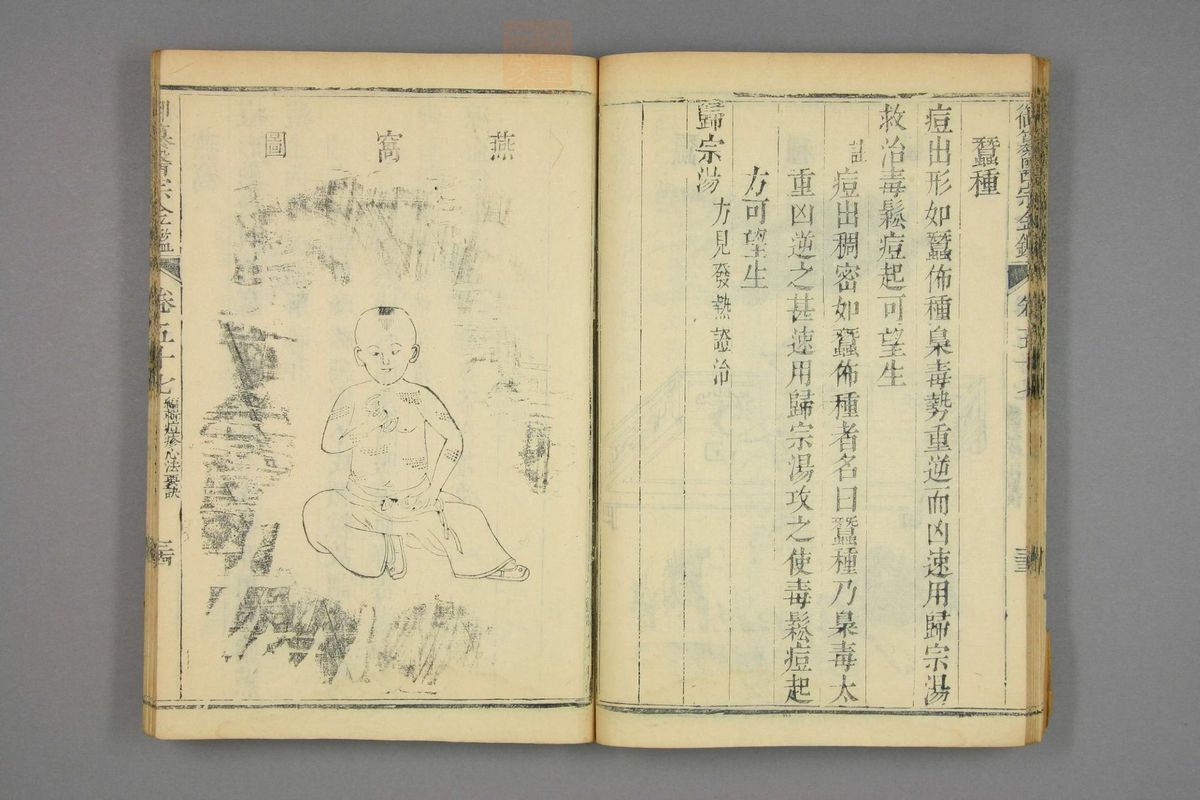 御纂醫宗金鑑
卷五十七
三十三
蠶種
痘出形如蠶佈種梟毒勢重逆而凶速用歸宗湯
救治毒鬆痘起可望生
註
痘出稠密如蠶佈種者名曰蠶種乃梟毒太
重凶逆之甚速用歸宗湯攻之使毒鬆痘起
方可望生
歸宗湯
方見發熱證治
燕窩圖
御纂醫宗金鑑
卷五十七
編輯痘疹心法要訣